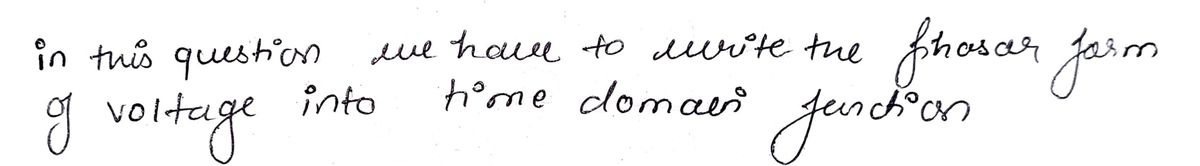 in this question we have to write the phasor form
of voltage into time domain function